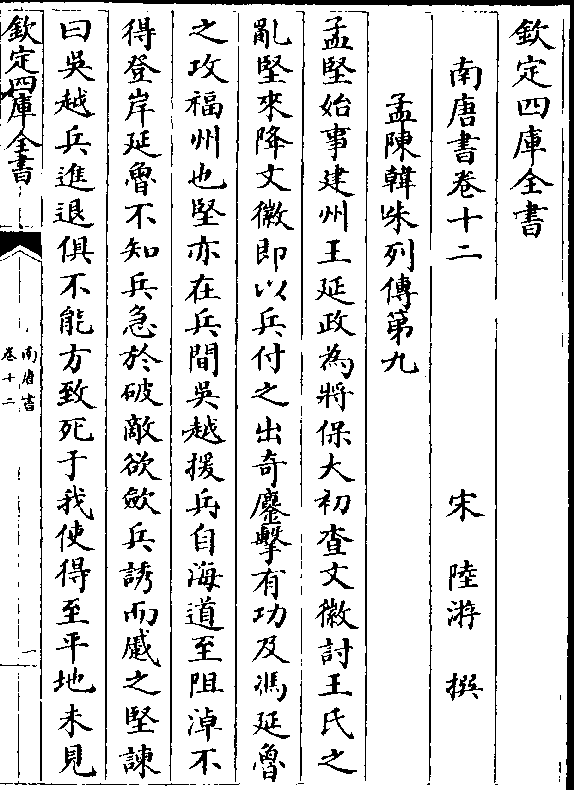 欽定四庫全書
南唐書卷十二
宋 陸游 撰
孟陳韓朱列傳第九
孟堅始事建州王延政為將保大初查文徽討王氏之
亂堅來降文徽即以兵付之出奇鏖擊有功及馮延魯
之攻福州也堅亦在兵間吳越援兵自海道至阻淖不
得登岸延魯不知兵急於破敵欲斂兵誘而䘐之堅諫
曰吳越兵進退俱不能方致死于我使得至平地未見
欽定四庫全書
南唐書
卷十二
一